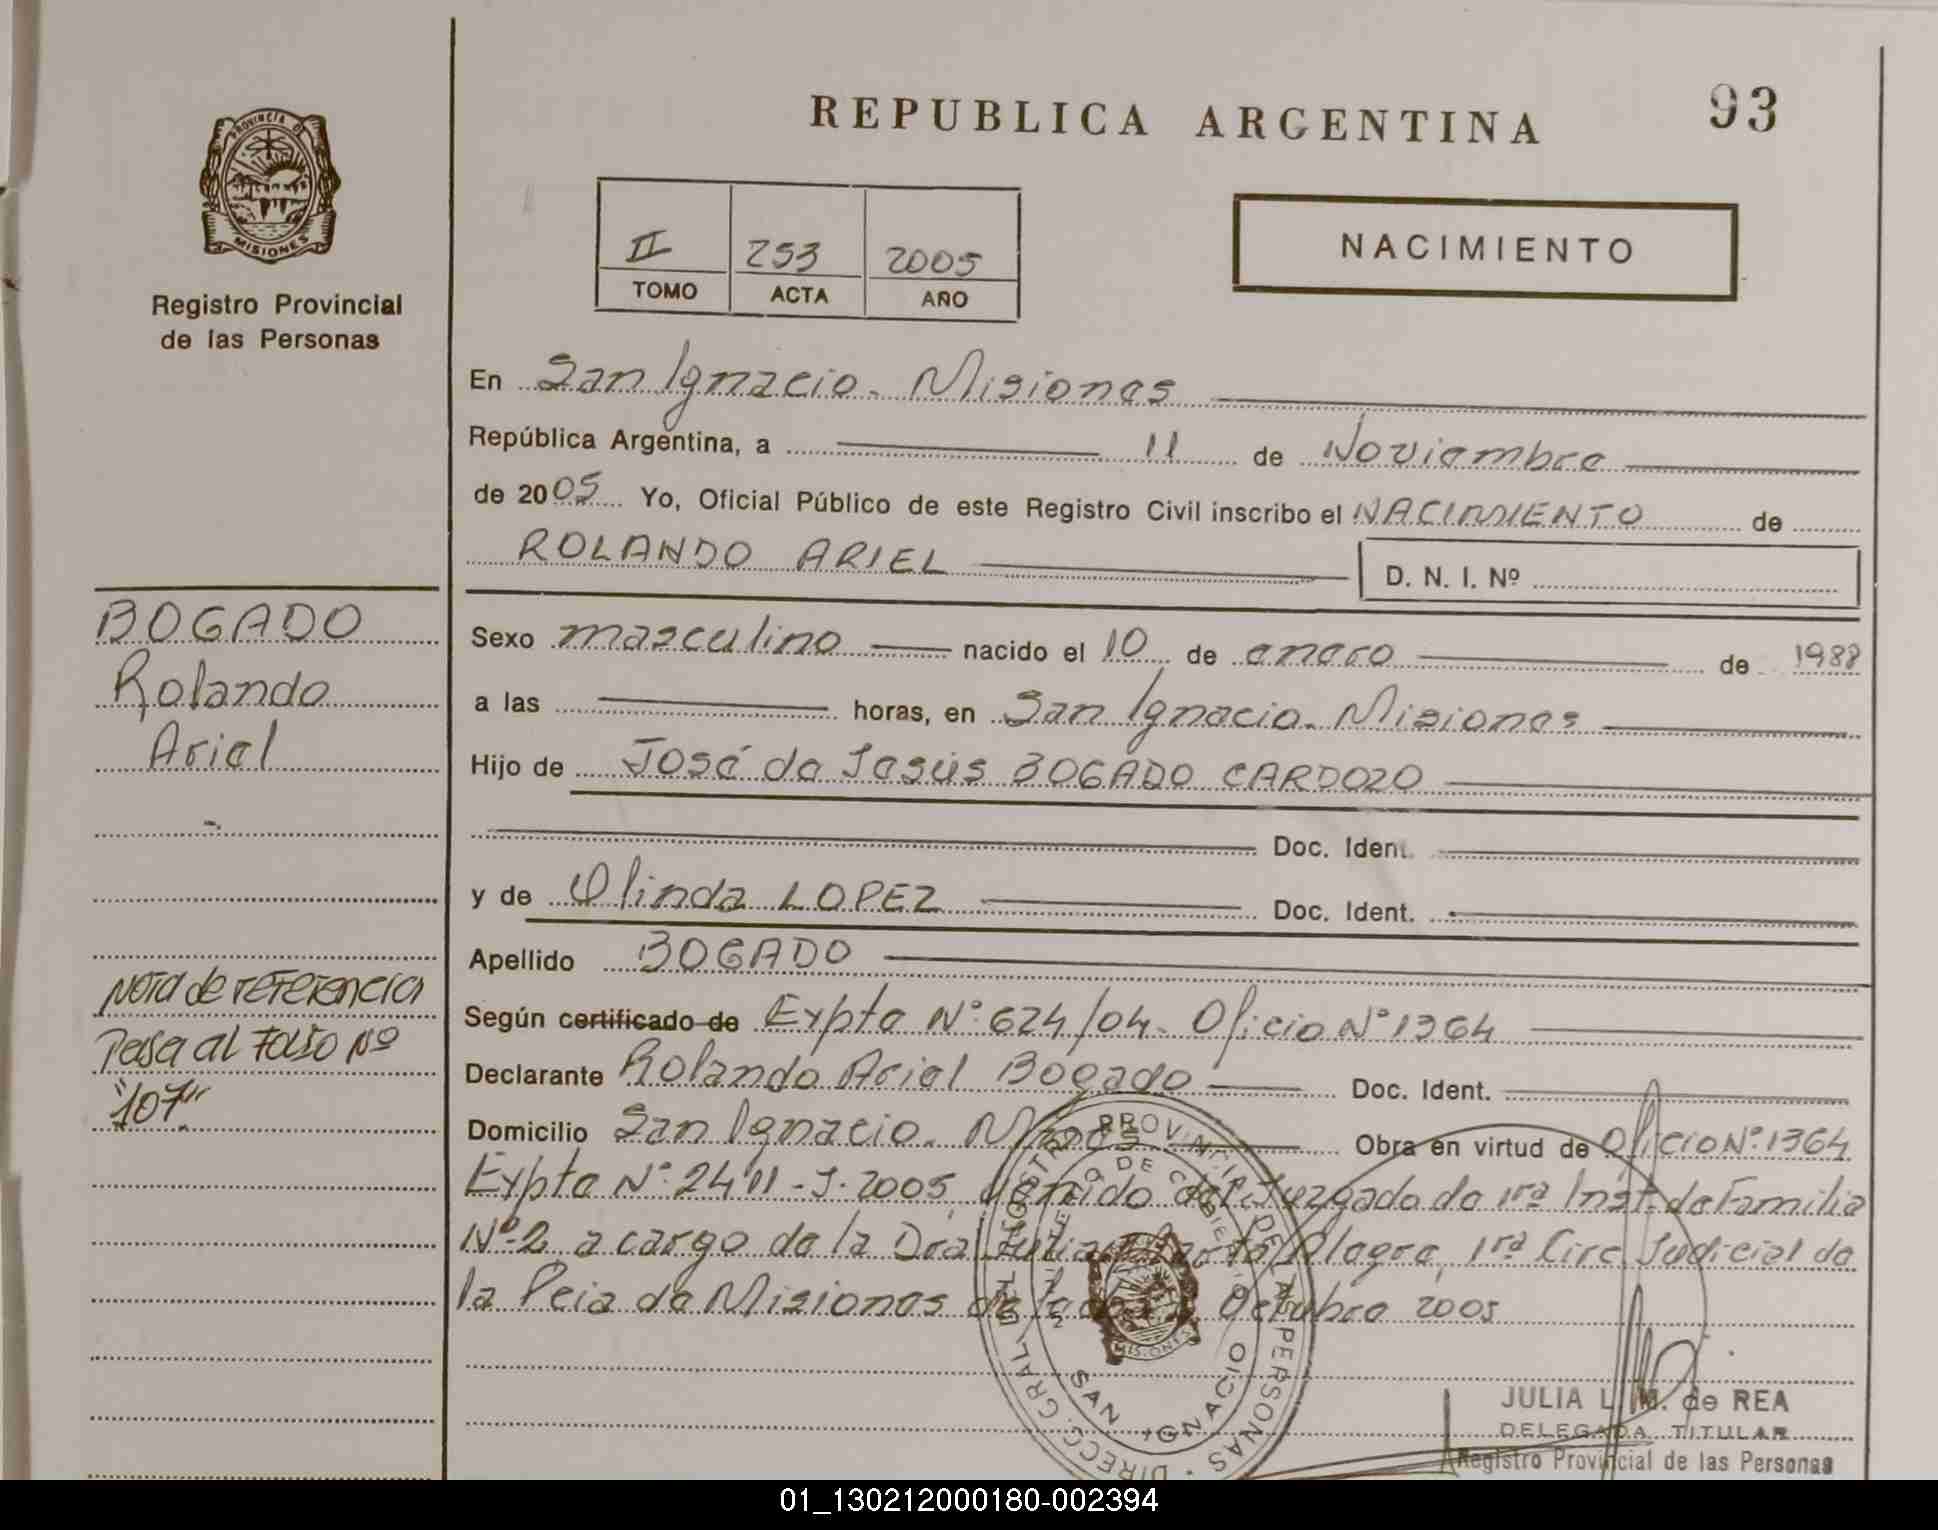 REPUBLICA ARGENTINA
93
PROVINCIA D
MISIONES
Registro Provincial
de las Personas
II 253 2005
TOMO ACTA AÑO
NACIMIENTO
En San Ignacio. Misiones
República Argentina, a 11 de Noviembre
de 2005 Yo, Oficial Público de este Registro Civil inscribo el NACIMIENTO de
ROLANDO ARIEL D. N. I. Nº
BOGADO
Rolando
Ariel
Sexo masculino nacido el 10 de enero de 1988
a las horas, en San Ignacio. Misiones
Hijo de José de Jesús BOGADO CARDOZO
Doc. Ident.
y de Olinda LOPEZ Doc. Ident.
Apellido BOGADO
Nota de referencia
Pasa al Folio Nº
"107"
Según certificado de Expte Nº 624/04. Oficio Nº 1364
Declarante Rolando Ariel Bogado Doc. Ident.
Domicilio San Ignacio. Mnes Obra en virtud de Oficio Nº 1364
Expte Nº 2411-J-2005, venido del Juzgado de 1ra Inst. de Familia
Nº 2, a cargo de la Dra. Alegre, 1ra Circ. Judicial de
la Pcia de Misiones de Octubre 2005
DIRECC. GRAL. DEL REGISTRO PROVINCIAL DE LAS PERSONAS
SAN IGNACIO
MISIONES
JULIA L. M. de REA
DELEGADA TITULAR
Registro Provincial de las Personas
01_130212000180-002394